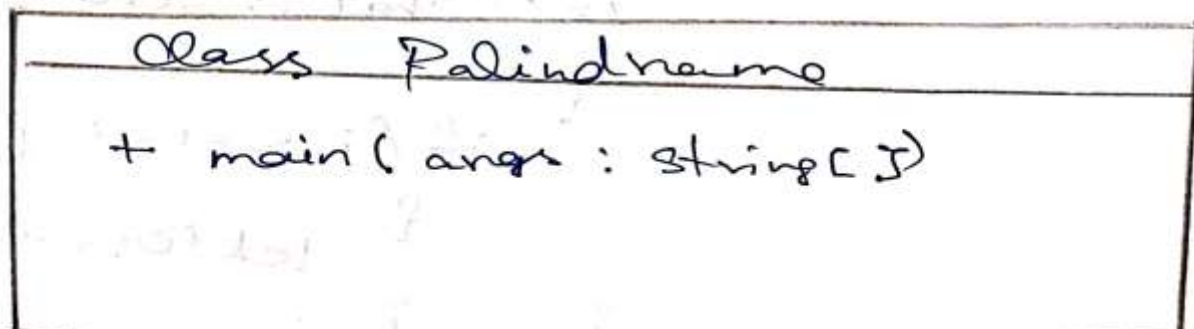 class Palindrome
+ main( args : string[])